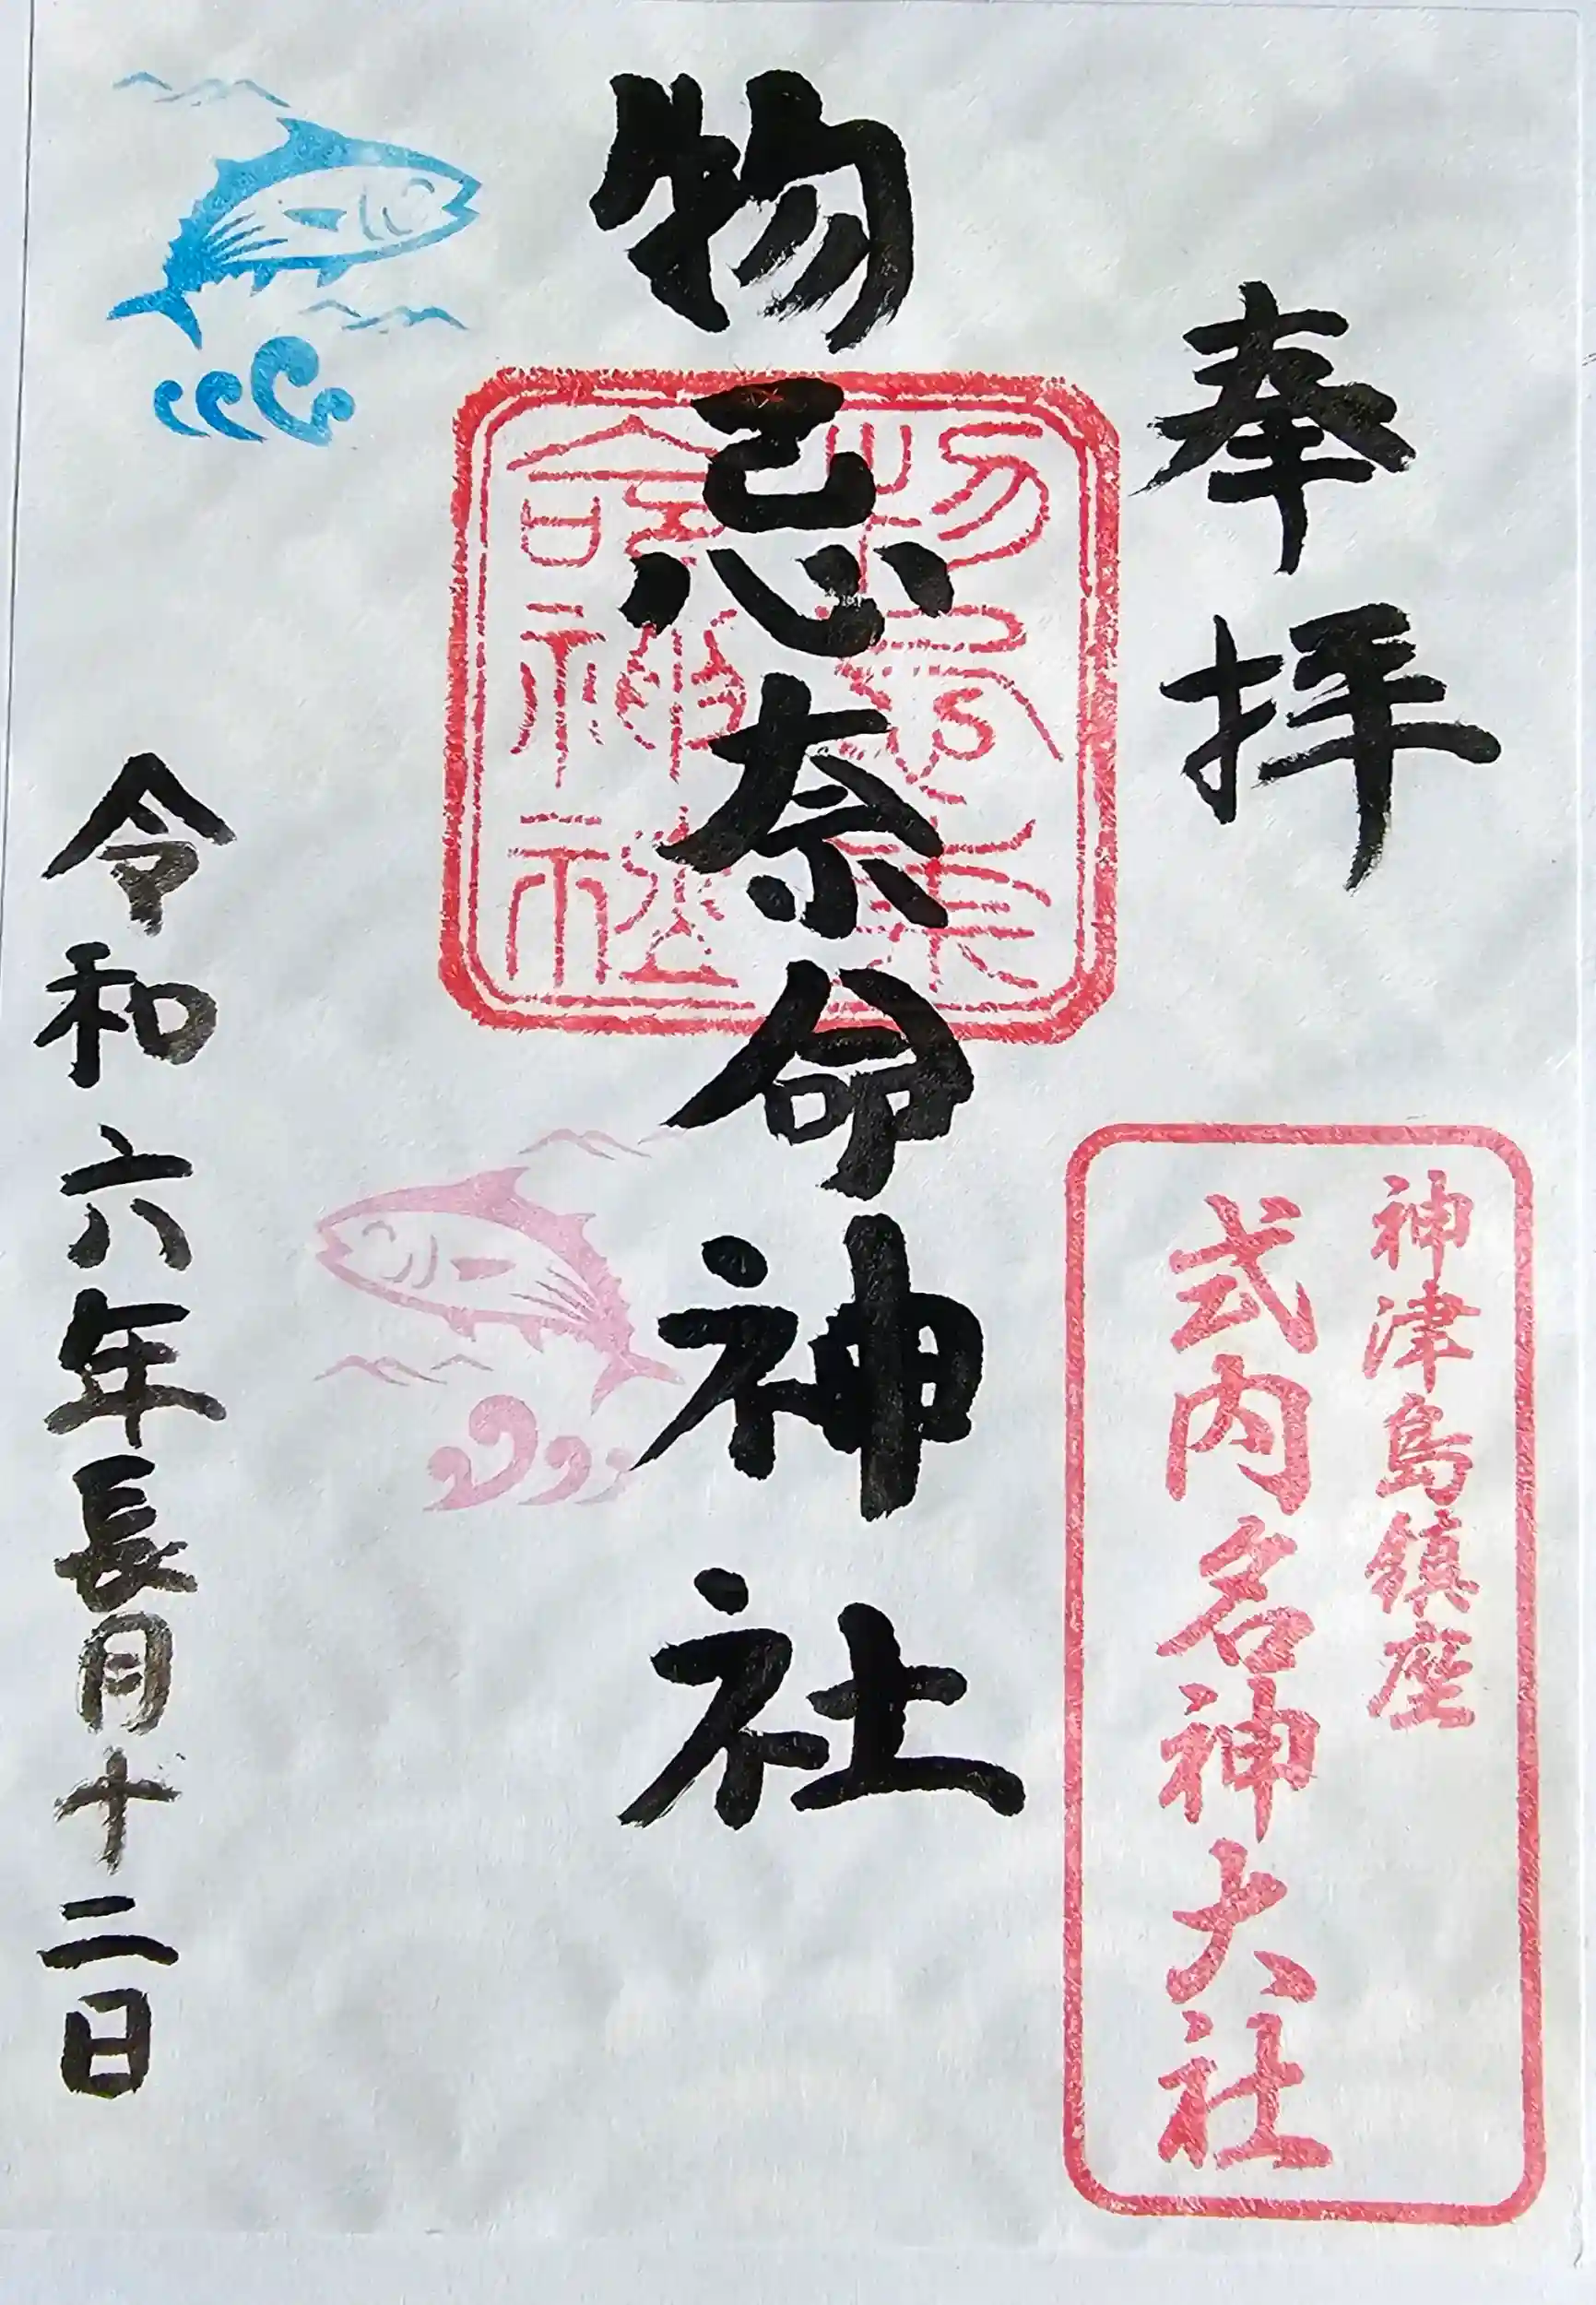 奉拝
神津島鎮座
式内名神大社
物忌奈命神社
物忌奈
命神社
令和六年長月十二日